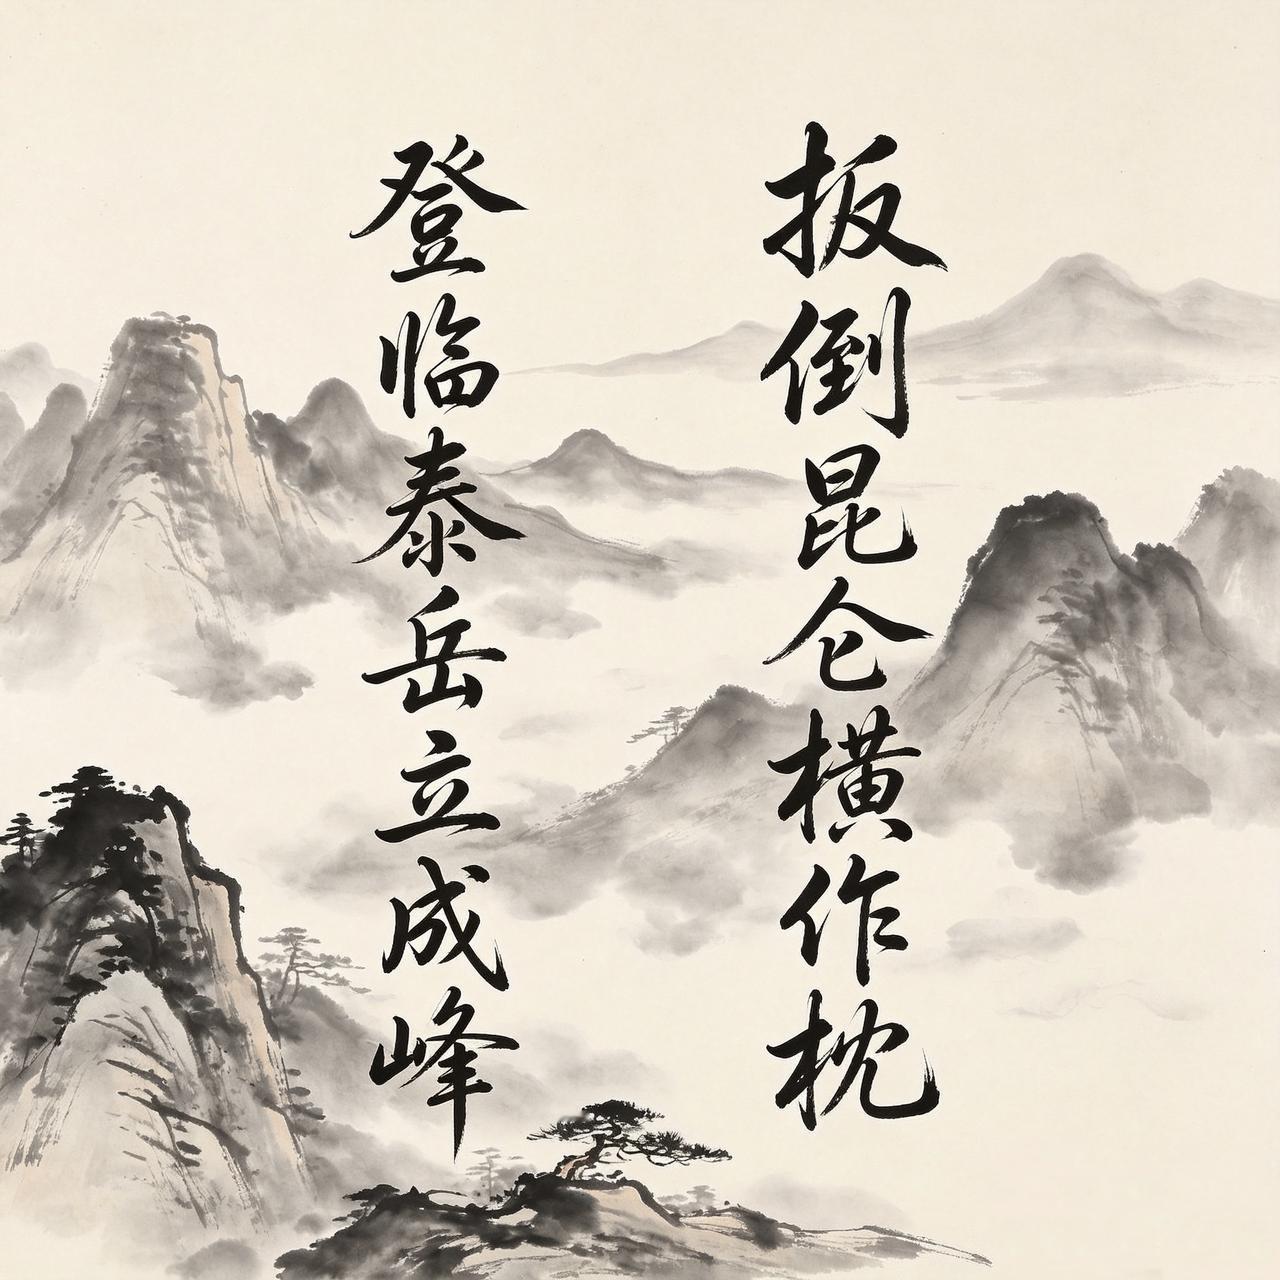 扳倒昆仑横作枕
登临泰岳立成峰